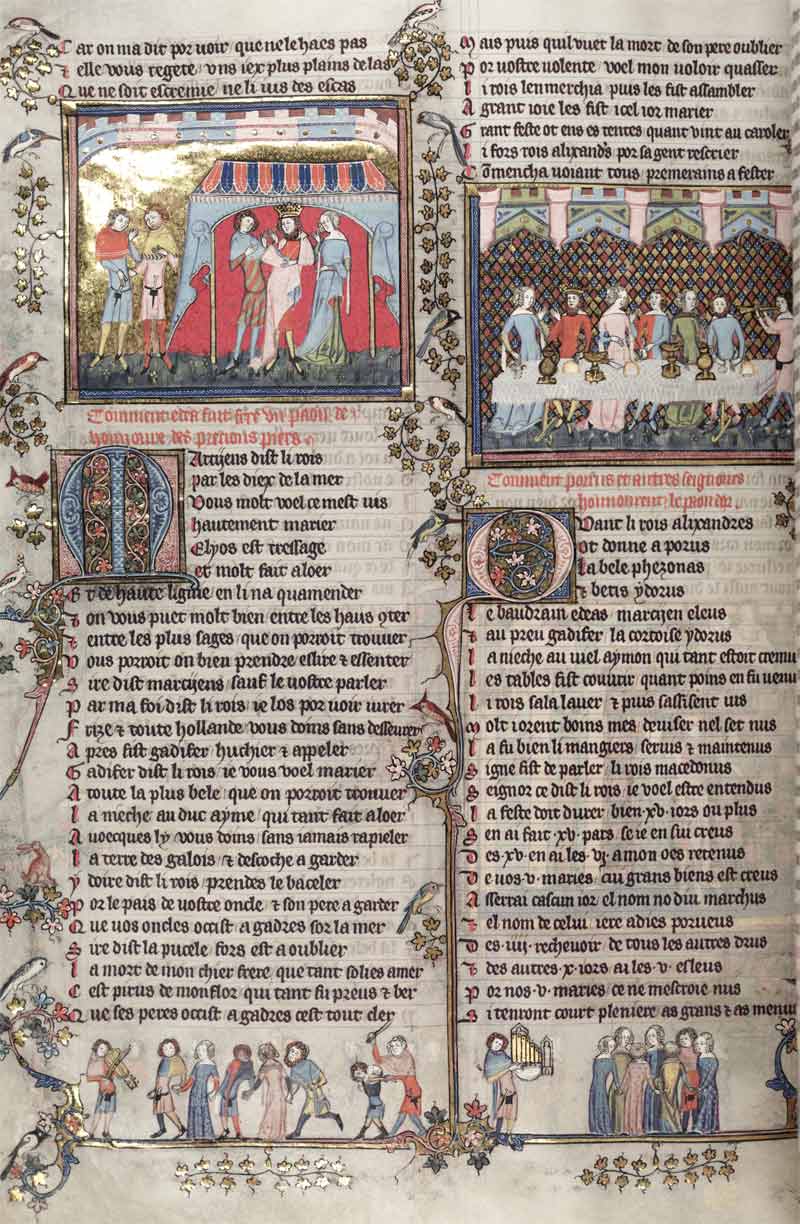 Car on ma dit por uoir que nele haes pas
⁊ elle vous regete vns iex plus plains de las
Que ne soit escremie ne li uis des escas
Comment edea fait fere vn paon de
des precious piers
Marcijens dist li rois
par les diex de la mer
Vous molt voel ce mest uis
hautement marier
Elyos est tressage
et molt fait aloer
Et de haute ligne en li na quamender
⁊ on vous puet molt bien entre les haus ꝯter
⁊ entre les plus sages que on porroit trouuer
Vous porroit on bien prendre eslire ⁊ essenter
Sire dist marcijens sauf le uostre parler
Par ma foi dist li rois ie los por uoir iurer
Frize ⁊ toute hollande vous doins sans desseurer
Apres fist gadifer huchier ⁊ appeler
Gadifer dist li rois ie vous voel marier
A toute la plus bele que on porroit trouuer
La nieche au duc ayme qui tant fait aloer
Auoecques ly vous doins sans iamais rapieler
La terre des galois ⁊ descoche a garder
Ydoire dist li rois prendes le baceler
Por le pais de uostre oncle ⁊ son pere a garder
Que uos oncles occist a gadres sor la mer
Sire dist la pucele fors est a oublier
La mort de mon chier frere que tant solies amer
Cest pirus de monflor qui tant fu preus ⁊ ber
Que ses peres occist a gadres cest tout cler
Mais puis quil vuet la mort de son pere oublier
Por uostre uolente voel mon uoloir quasser
Li rois len merchia puis les fist assambler
A grant ioie les fist icel ior marier
Grant feste ot ens es tentes quant vint au caroler
Li fors rois alixandꝰs por sa gent rescrier
Cõmencha uoiant tous premerains a fester
Comment porrus et autres seignours
hounourent le paon
Quant li rois alixandres
ot donne a porus
La bele phezonas
⁊ betis ydorus
Le baudrain edeas marcijen eleus
⁊ au preu gadifer la cortoise ydorus
La nieche au uiel aymon qui tant estoit cremu
Les tables fist couurir quant poins en fu uenu
Li rois sala lauer ⁊ puis sassisent uis
Molt iorent boins mes deuiser nel set nus
La fu bien li mangiers seruis ⁊ maintenus
Signe fist de parler li rois macedonus
Seignor ce dist li rois ie voel estre entendus
La feste doit durer bien .xv. iors ou plus
Sen ai fait .xv. pars se ie en sui creus
Des .xv. en ai les .vj. a mon oes retenus
De uos .v. maries cui grans biens est creus
Asserrai cascun ior el nom no diu marchus
⁊ el nom de celui iere adies porueus
Des .iiij. recheuoir de tous les autres drus
⁊ des autres .x. iors ai les .v. esleus
Por nos .v. maries ce ne mescroie nus
Si tenront court pleniere as grans ⁊ as menu